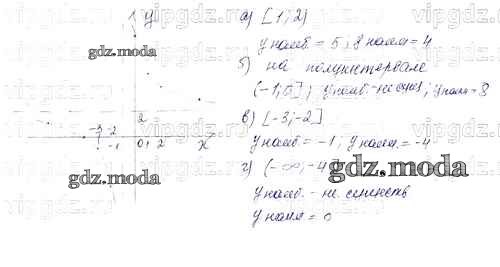 y
а) [1; 2)
y наиб = 5, y наим = 4
б) на полуинтервале
(-1, 0]; y наиб - не сущ; y наим = 8
в) [-3; -2]
y наиб = -1, y наим = -4
г) (-∞, -4]
y наиб - не существ
y наим = 0
2
-3 -2
-1 0 1 2 x
gdz.moda
gdz.moda
gdz.moda
vipgdz.com